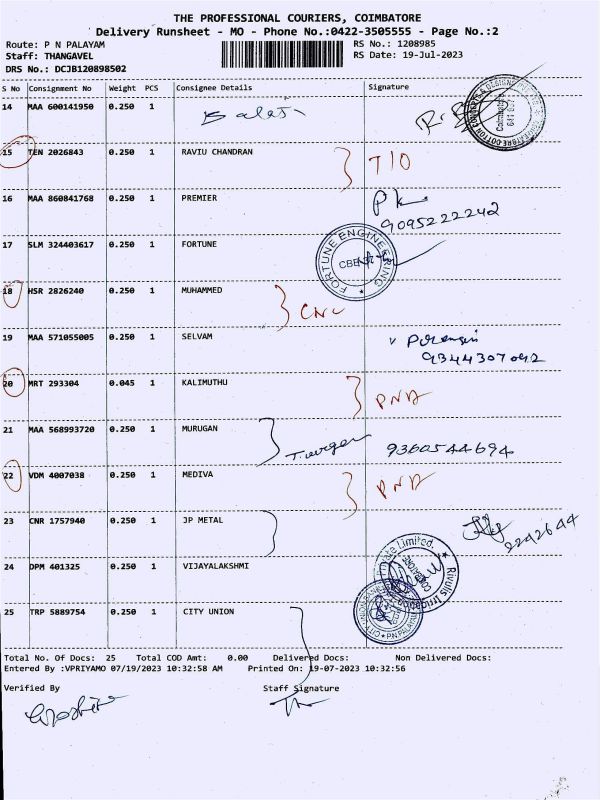 THE PROFESSIONAL COURIERS, COIMBATORE
Delivery Runsheet - MO - Phone No.:0422-3505555 - Page No.:2
Route: P N PALAYAM RS No.: 1208985
Staff: THANGAVEL RS Date: 19-Jul-2023
DRS No.: DCJB120898502
S No Consignment No Weight PCS Consignee Details Signature
14 MAA 600141950 0.250 1 Balaji
15 TEN 2026843 0.250 1 RAVIU CHANDRAN T/O
16 MAA 860841768 0.250 1 PREMIER
9095222242
17 SLM 324403617 0.250 1 FORTUNE FORTUNE ENGINEERING CBE
18 HSR 2826240 0.250 1 MUHAMMED CNC
19 MAA 571055005 0.250 1 SELVAM
9344307092
20 MRT 293304 0.045 1 KALIMUTHU PND
21 MAA 568993720 0.250 1 MURUGAN 9360544694
22 VDM 4007038 0.250 1 MEDIVA PND
23 CNR 1757940 0.250 1 JP METAL
24 DPM 401325 0.250 1 VIJAYALAKSHMI
25 TRP 5889754 0.250 1 CITY UNION
Total No. Of Docs: 25 Total COD Amt: 0.00 Delivered Docs: Non Delivered Docs:
Entered By :VPRIYAMO 07/19/2023 10:32:58 AM Printed On: 19-07-2023 10:32:56
Verified By Staff Signature